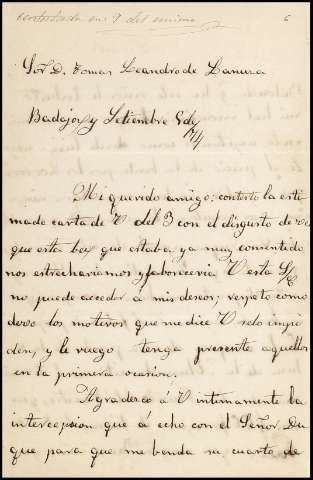 contestada en 9 del mismo
6
Sor D. Tomas Leandro de Lanuza
Badajoz y Setiembre 5 de
74
Mi querido amigo: contesto la esti
mada carta de V del 3 con el disgusto de ver
que esta bez que estaba ya muy consentido
nos estrechariamos y faboreceria V esta S/C
no puede acceder a mis deseos; respeto como
devo los motivos que me dice V se lo impi
den, y le ruego tenga presente aquellos
en la primera ocasion.
Agradezco á V intimamente la
intercepsion que á echo con el Señor Du
que para que me benda su cuarto de